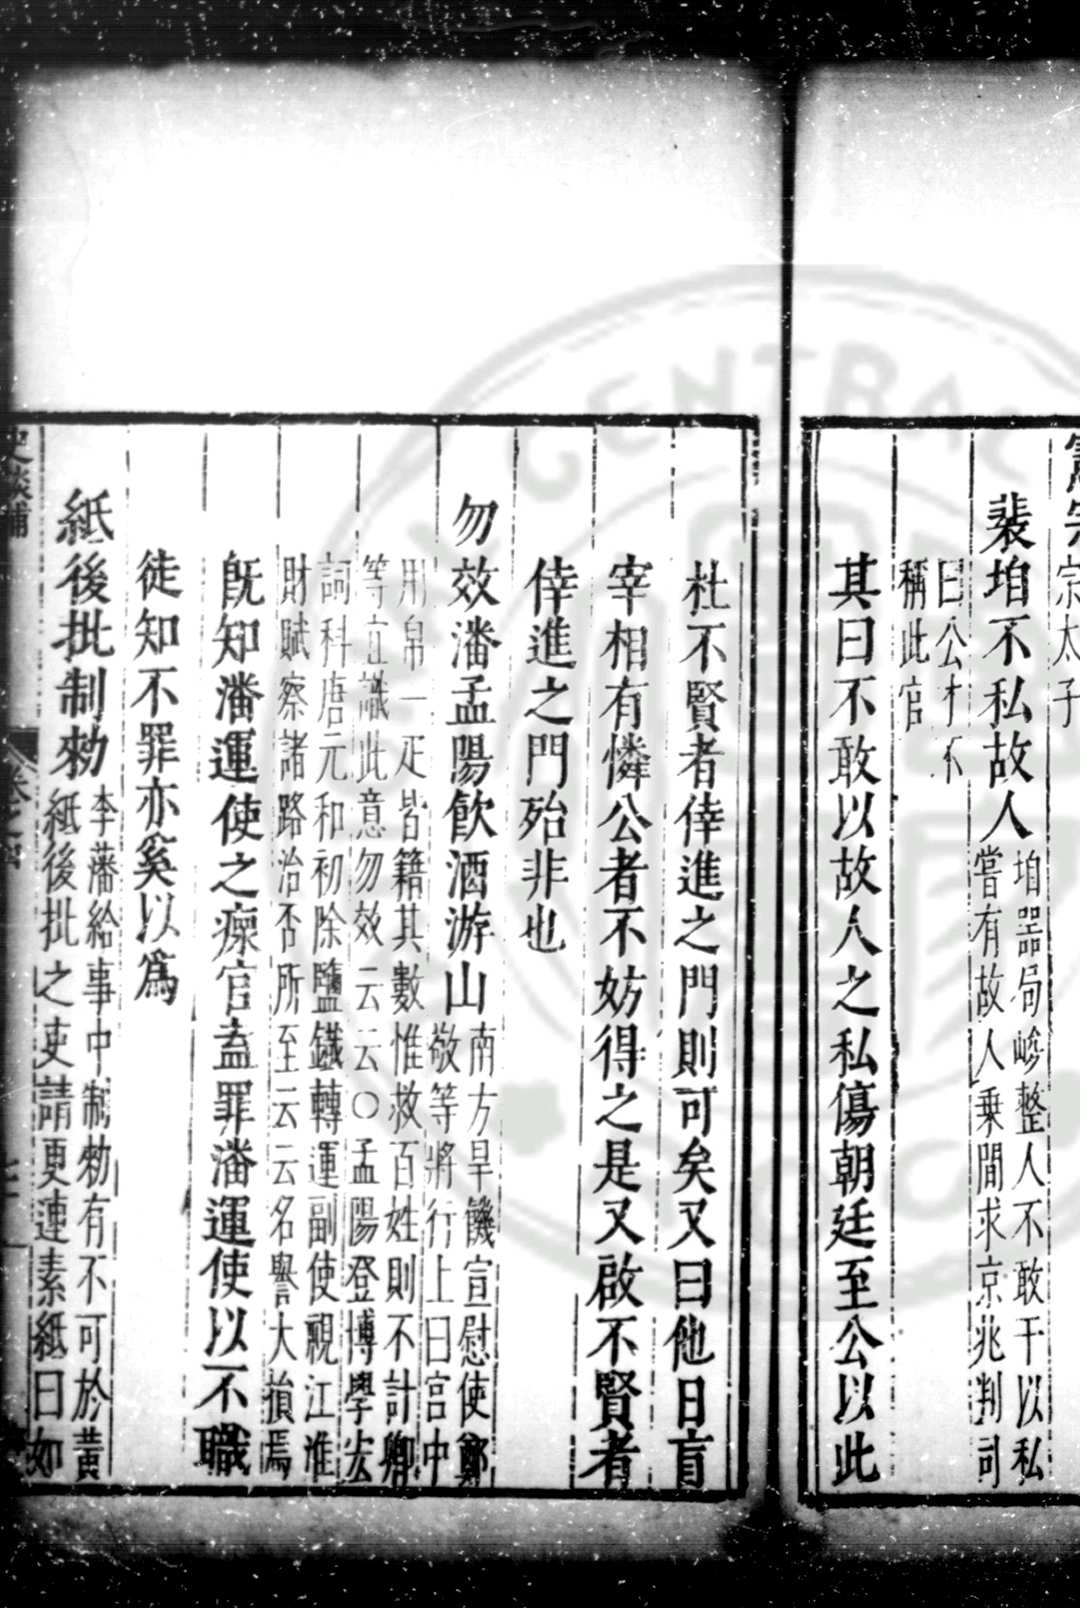 宗太子
裴垍不私故人
垍器局峻整人不敢干以私
嘗有故人乗間求京兆判司
曰公才不
稱此官
其曰不敢以故人之私傷朝廷至公以此
杜不賢者倖進之門則可矣又曰他日盲
宰相有憐公者不妨得之是又啟不賢者
倖進之門殆非也
勿效潘孟陽飲酒游山
南方旱饑宣慰使鄭
敬等將行上曰宮中
用帛一疋皆籍其數惟救百姓則不計卿
等宜識此意勿效云云○孟陽登博學宏
詞科唐元和初除鹽鐵轉運副使視江淮
財賦察諸路治否所至云云名譽大損焉
旣知潘運使之瘝官盍罪潘運使以不職
徒知不罪亦奚以爲
紙後批制勑
李藩給事中制勑有不可於黃
紙後批之吏請更連素紙曰如
史談補
卷之四